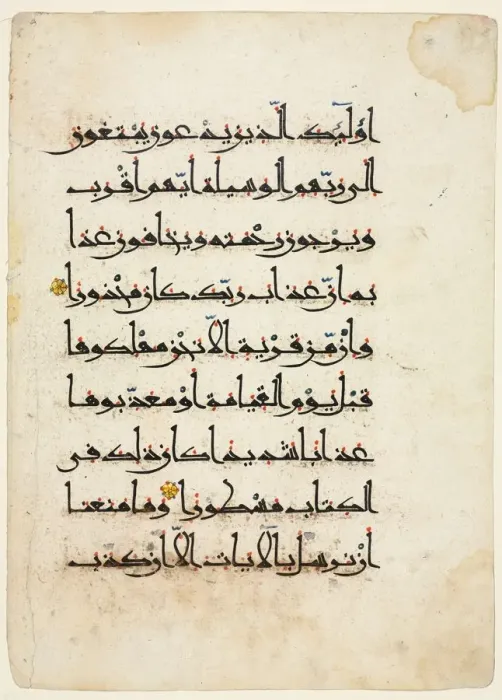 اُولَٰٓئِكَ الَّذِينَ يَدْعُونَ يَبْتَغُونَ
إِلَى رَبِّهِمُ الْوَسِيلَةَ أَيُّهُمْ أَقْرَبُ
وَيَرْجُونَ رَحْمَتَهُ وَيَخَافُونَ عَذَا
بَهُ إِنَّ عَذَابَ رَبِّكَ كَانَ مَحْذُورًا
وَإِنْ مِّنْ قَرْيَةٍ إِلَّا نَحْنُ مُهْلِكُوهَا
قَبْلَ يَوْمِ الْقِيَامَةِ أَوْ مُعَذِّبُوهَا
عَذَابًا شَدِيدًا كَانَ ذَلِكَ فِي
الْكِتَابِ مَسْطُورًا وَمَا مَنَعَنَا
أَنْ نُرْسِلَ بِالْآيَاتِ إِلَّا أَنْ كَذَّبَ